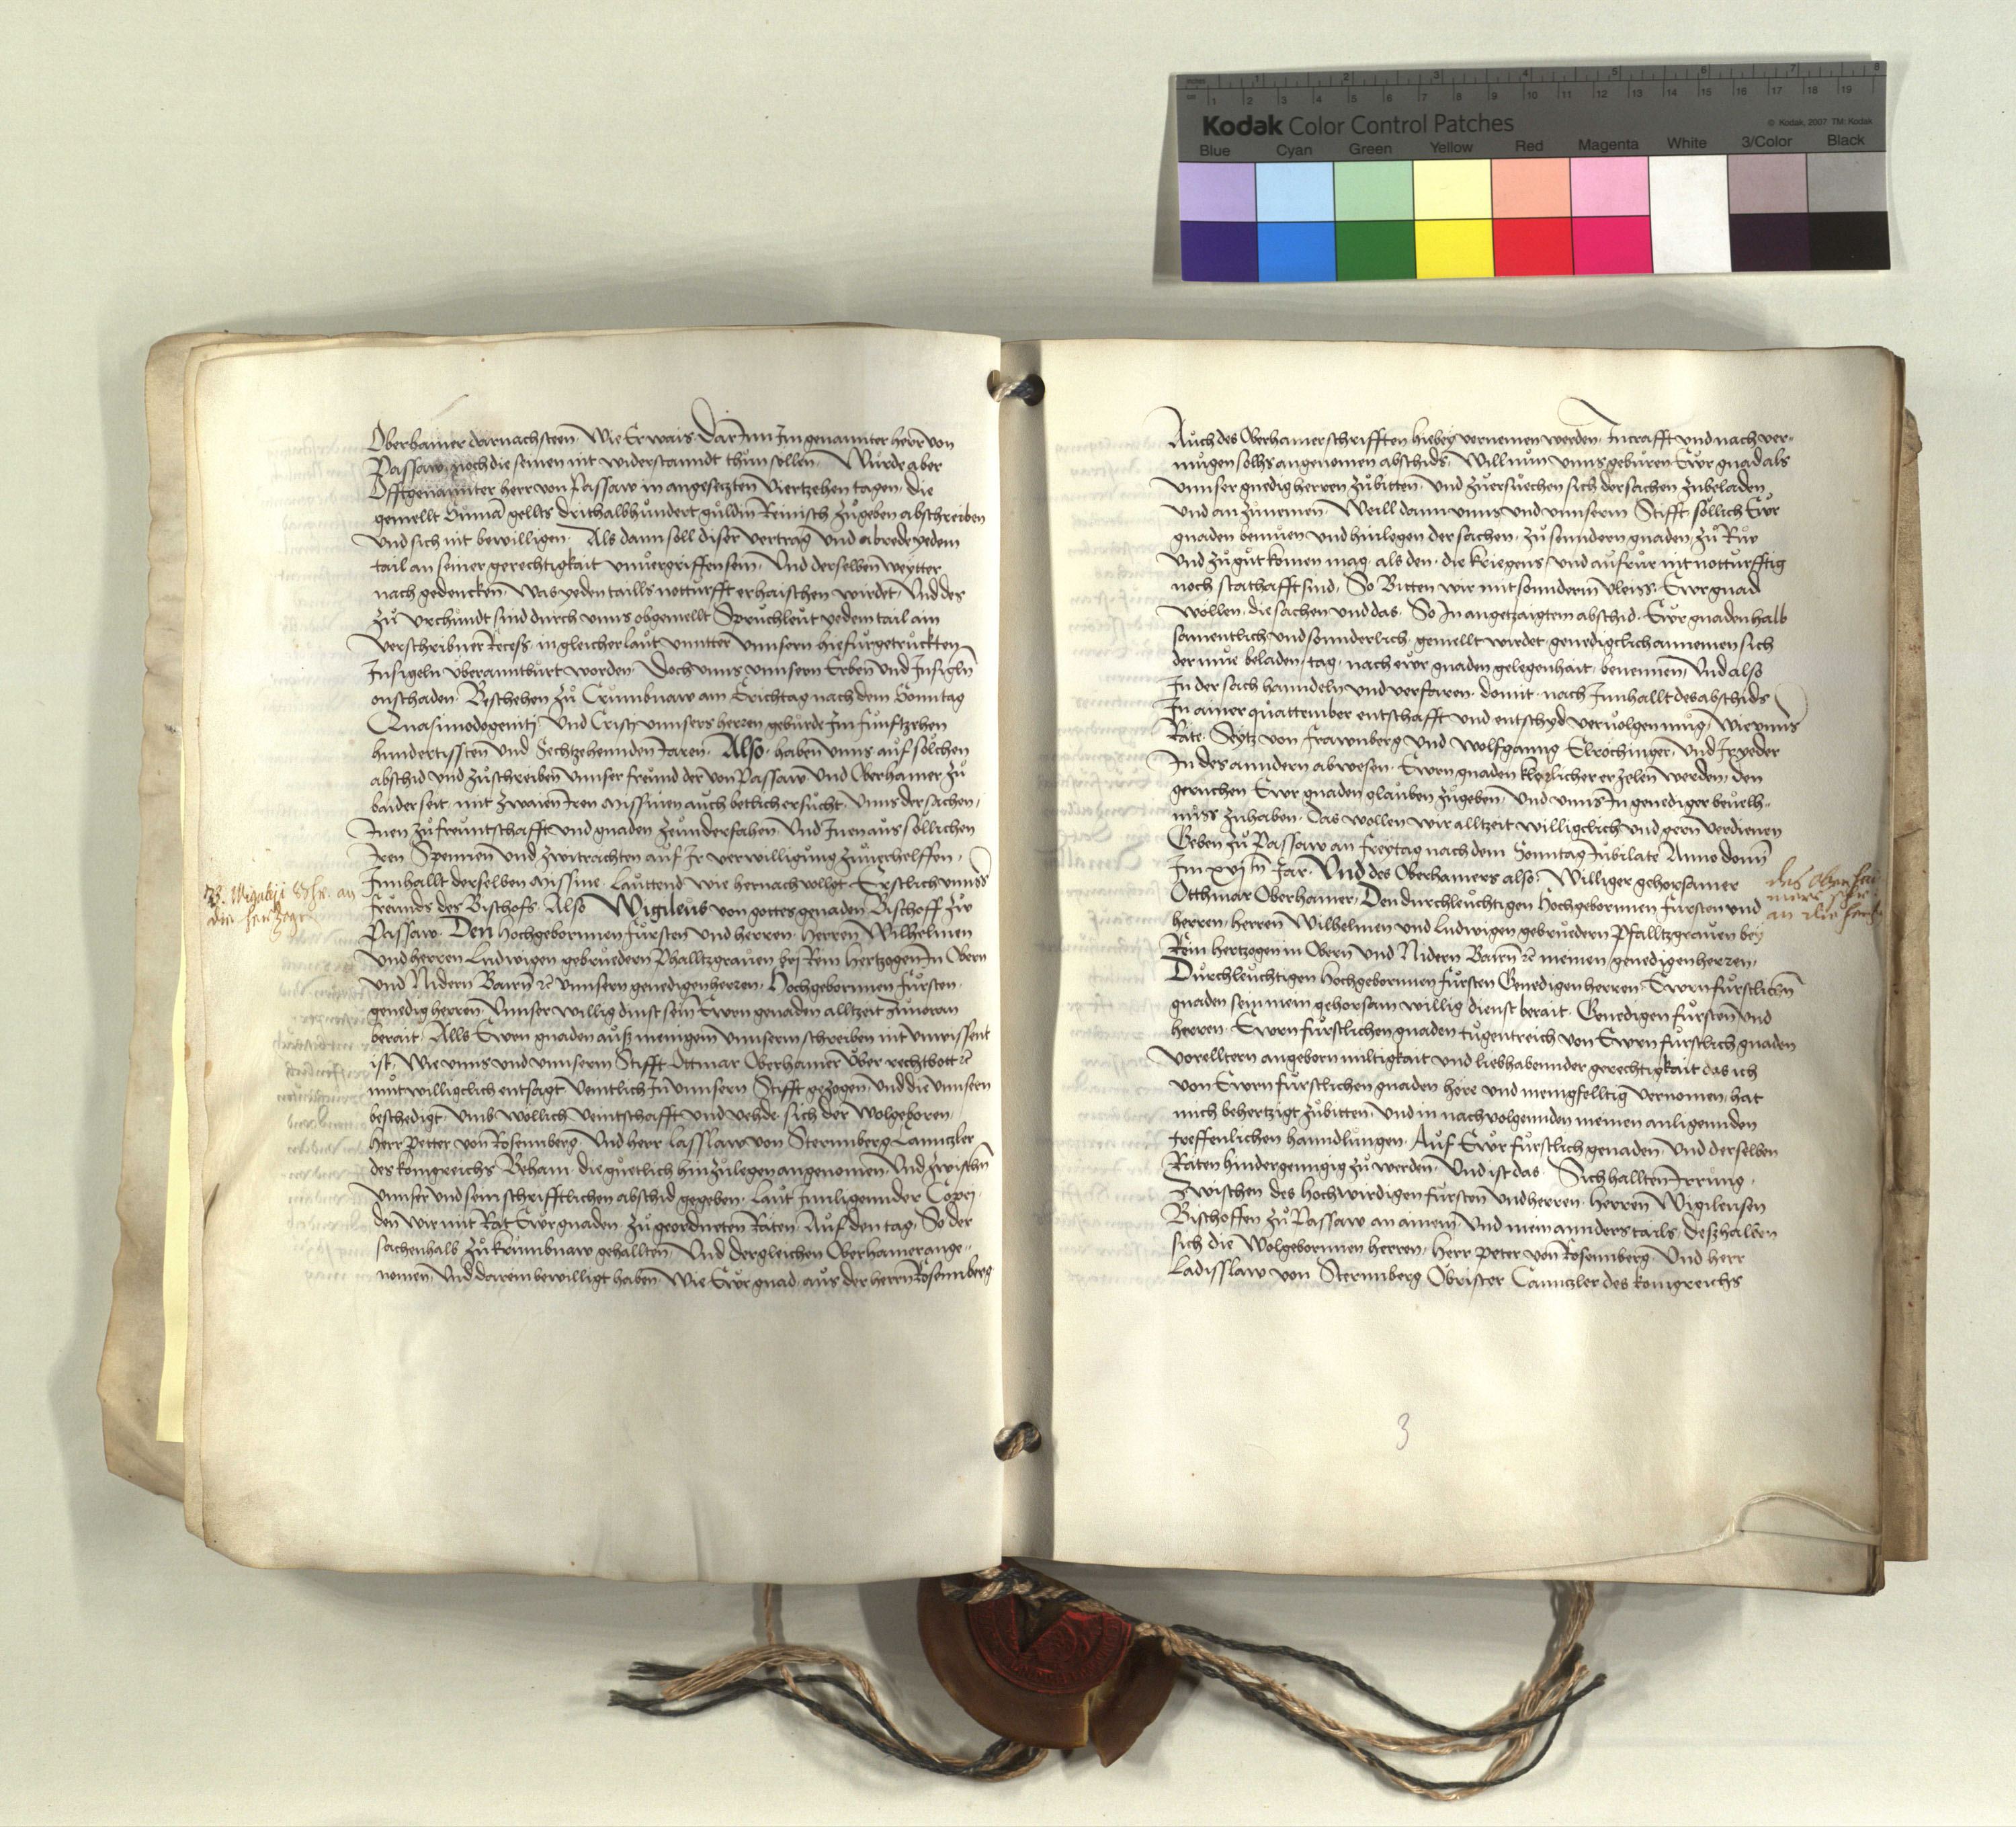 inches 1 2 3 4 5 6 7 8
cm 1 2 3 4 5 6 7 8 9 10 11 12 13 14 15 16 17 18 19
Kodak Color Control Patches © Kodak, 2007 TM: Kodak
Blue Cyan Green Yellow Red Magenta White 3/Color Black
Oberhamer darnachsteen. Wie Er wais. Darinn Im genannter herr von
Passaw, noch die seinen nit widerstanndt thun sollen. Wurde aber
Offtgenannter herr von Passaw in angesetzten Viertzehen tagen, die
gemellt Summa gellts drithalbhundert guldin Reinisch zugeben abschreiben
Und sich nit bewilligen. Als dann soll diser vertrag und abrede yedem
tail an seiner gerechtigkait unvergriffen sein. Und derselben weytter
nach gedencken. Was yeden taills notturfft erhaischen wirdet. Und des
zu Urchundt sind durch unns obgemellt Spruchleut yedem tail ain
Verschribner Recess. in gleicher laut unntter unnsern hiefurgetruckten
Insigeln uberanntburt worden. Doch unns unnsern Erben und Insigln
onschaden. Beschehen zu Crumbnaw am Erichtag nach dem Sonntag
Quasimodogeniti Und Cristi unnsers herren geburde Im funftzehen
hundertissten und Sechzehennden Jaren. Also. haben unns auf solchen
abschid und zuschreiben unnser freund der von Passaw und Oberhamer zu
baider seit. mit zwaien Iren missiuen auch betlich ersucht. Unns der sachen,
Inen zu freuntschafft und gnaden zeundersahen. Und Inen aus sollichen
Iren Spennen und Zwitrachten auf Ir verwilligung zuuerhelffen.
Innhallt derselben missiue. Lauttend wie hernach vollgt. Erstlich unnss
freunds des Bischofs. Also Wigileus von gottes genaden Bischoff zw
Passaw. Den hochgebornnen fursten und herren. herren Wilhelmen
und herren Ludwigen gebruedern Phalltzgrauen bej Rein Hertzogen In Obern
und Nidern Bairn etc unnsern genedigen herren. Hochgebornnen fursten.
genedig herren. Unnser willig dinst sein Ewrn genaden alltzeit zuuoran
berait. Alls Ewrn gnaden auss menigem unnserm schreiben nit unwissent
ist. Wie unns und unnserm Stifft Ottmar Oberhamer uber rechtbott etc
mutwilligclich entsagt Veintlich zu unnsern Stifft gezogen. und die unnsern
beschedigt. Umb wollich Veintschafft und vehde. sich der Wolgeboren
Herr Petter von Rosennberg. Und herr Lasslaw von Sternnberg Canntzler
des konigreichs Beham. die guetlich hinzulegen angenomen. Und zwischn
Unnser und sein schrifftlichen abschid gegeben. laut Innligennder Copej.
den wir mit Rat Ewr gnaden. zugeordneten Räten. Auf den tag. So der
sachenhalb zu krumbnaw gehallten. Und dergleichen Oberhamer ange-
nomen. Und darein bewilligt haben. Wie Ewr gnad. aus der herrn Rosennberg
Auch des Oberhamer schrifften hiebey vernemen werden. In crafft und nach ver-
mugen solhs angenomen abschids. Will nun unns geburen Ewr gnad als
unnser gnedig herren zubitten. Und zuersuechen sich der sachen zubeladen
und anzunemen. Weill dann unns und unnserm Stifft sollich Ewr
gnaden bemuen und hinlegen der sachen. zu sonndern gnaden, zu Rue
Und zu gut komen mag. als den. die kriegens und aufrur nit notturfftig
noch stathafft sind. So Bitten wir mit sonnderm Vleiss. Ewr gnad
wollen. die sachen und das. So In angetzaigtem abschid. Ewr gnaden halb
samentlich und sonnderlich gemellt wirdet. genedigclich annemen sich
der mue beladen. tag. nach ewr gnaden gelegenhait. benennen. Und also
In der sach hanndeln und verfaren. domit. nach Innhallt des abschids
In ainer quattember entschafft und entschyd veruolgen mug. Wie unns
Räte. Seytz von frawnberg und wolfganng Elrochinger. Und Ir yeder
In des anndern abwesen. Ewrn gnaden klerlicher erzelen werden. den
geruchen Ewr gnaden glauben zugeben. Und unns In genediger beuelh-
nuss zuhaben. Das wollen wir alltzeit willigclich und gern verdienen
Geben zu Passaw an freytag nach dem Sonntag Jubilate Anno domi
Im xvj Jar. Und des Oberhamers also. Williger gehorsamer
Otthmar Oberhamer. Den durchleuchtigen Hochgebornnen fursten und
herren. herren Wilhelmen und Ludwigen gebruedern Pfalltzgrauen bey
Rein hertzogen in Obern und Nidern Bairn etc meinen genedigen herren.
Durchleuchtigen Hochgebornnen fursten Genedigen herren. Ewrn furstlichn
gnaden sein mein gehorsam willig dienst berait. Genedigen fursten und
herren. Ewrn furstlichen gnaden tugentreich von Ewrn furstlich gnaden
Vorelltern angeborn miltigkait und liebhabennder gerechtigkait das ich
von Ewrn furstlichen gnaden hore und menigfelltig vernomen, hat
mich behertzigt zubitten. Und in nachvolgennden meinen anligennden
treffenlichen hanndlungen. Auf Ewr furstlich genaden. Und derselben
Räten hindergenngig zu werden. Und ist das. Sich hallten Irrung.
Zwischen des Hochwirdigen fursten und herren. herren Wigileusen
Bischoffen zu Passaw an ainem. Und mein annders tails. deszhalben
sich die Wolgebornnen herren. Herr Peter von Rosennberg. Und herr
Ladisslaw von Sternnberg Obrister Canntzler des konigreichs
3